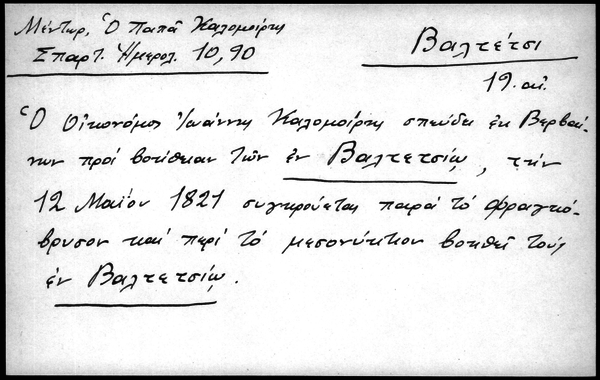 Μέντωρ, Ὁ Παπᾶ Καλομοίρης
Σπαρτ. Ἡμερολ. 10, 90
Βαλτέτσι
19. αἰ.
Ὁ Οἰκονόμος Ἰωάννης Καλομοίρης σπεύδει ἐκ Βερβαί-
νων πρὸς βοήθειαν τῶν ἐν Βαλτετσίῳ, τὴν
12 Μαΐου 1821 συγκρούεται παρὰ τὸ Φραγκό-
βρυσον καὶ περὶ τὸ μεσονύκτιον βοηθεῖ τοὺς
ἐν Βαλτετσίῳ.